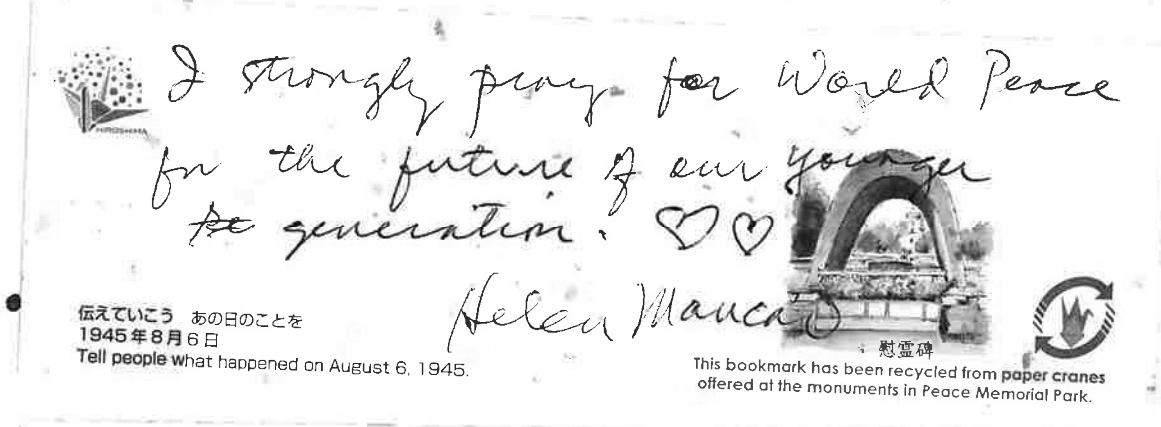 I strongly pray for World Peace
for the future of our younger
generation.
Helen
HIROSHIMA
伝えていこう あの日のことを
1945年8月6日
Tell people what happened on August 6, 1945.
慰霊碑
This bookmark has been recycled from paper cranes
offered at the monuments in Peace Memorial Park.